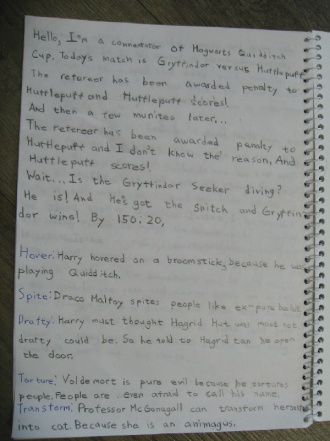 Hello, I'm a commentor of Hogvarts Quidditch
Cup. Today's match is Gryffindor versus Hufflepuff
The refereer has been awarded penalty to
Hufflepuff and Hufflepuff scores!
And then a few munites later...
The refereer has been awarded penalty to
Hufflepuff and I don't know the reason, And
Hufflepuff scores!
Wait... Is the Gryffindor Seeker diving?
He is! And He's got the Snitch and Gryffin
dor wins! By 150:20,
Hover: Harry hovered on a broomstick, because he was
playing Quidditch.
Spite: Draco Malfoy spites people like
Drafty: Harry must thought Hagrid Hut was most not
drafty could be. So he told to Hagrid can he open
the door.
Torture: Voldemort is pure evil because he tortures
people. People are even afraid to call his name.
Transform: Professor McGonagall can transform herself
into cat. Because she is an animagus.